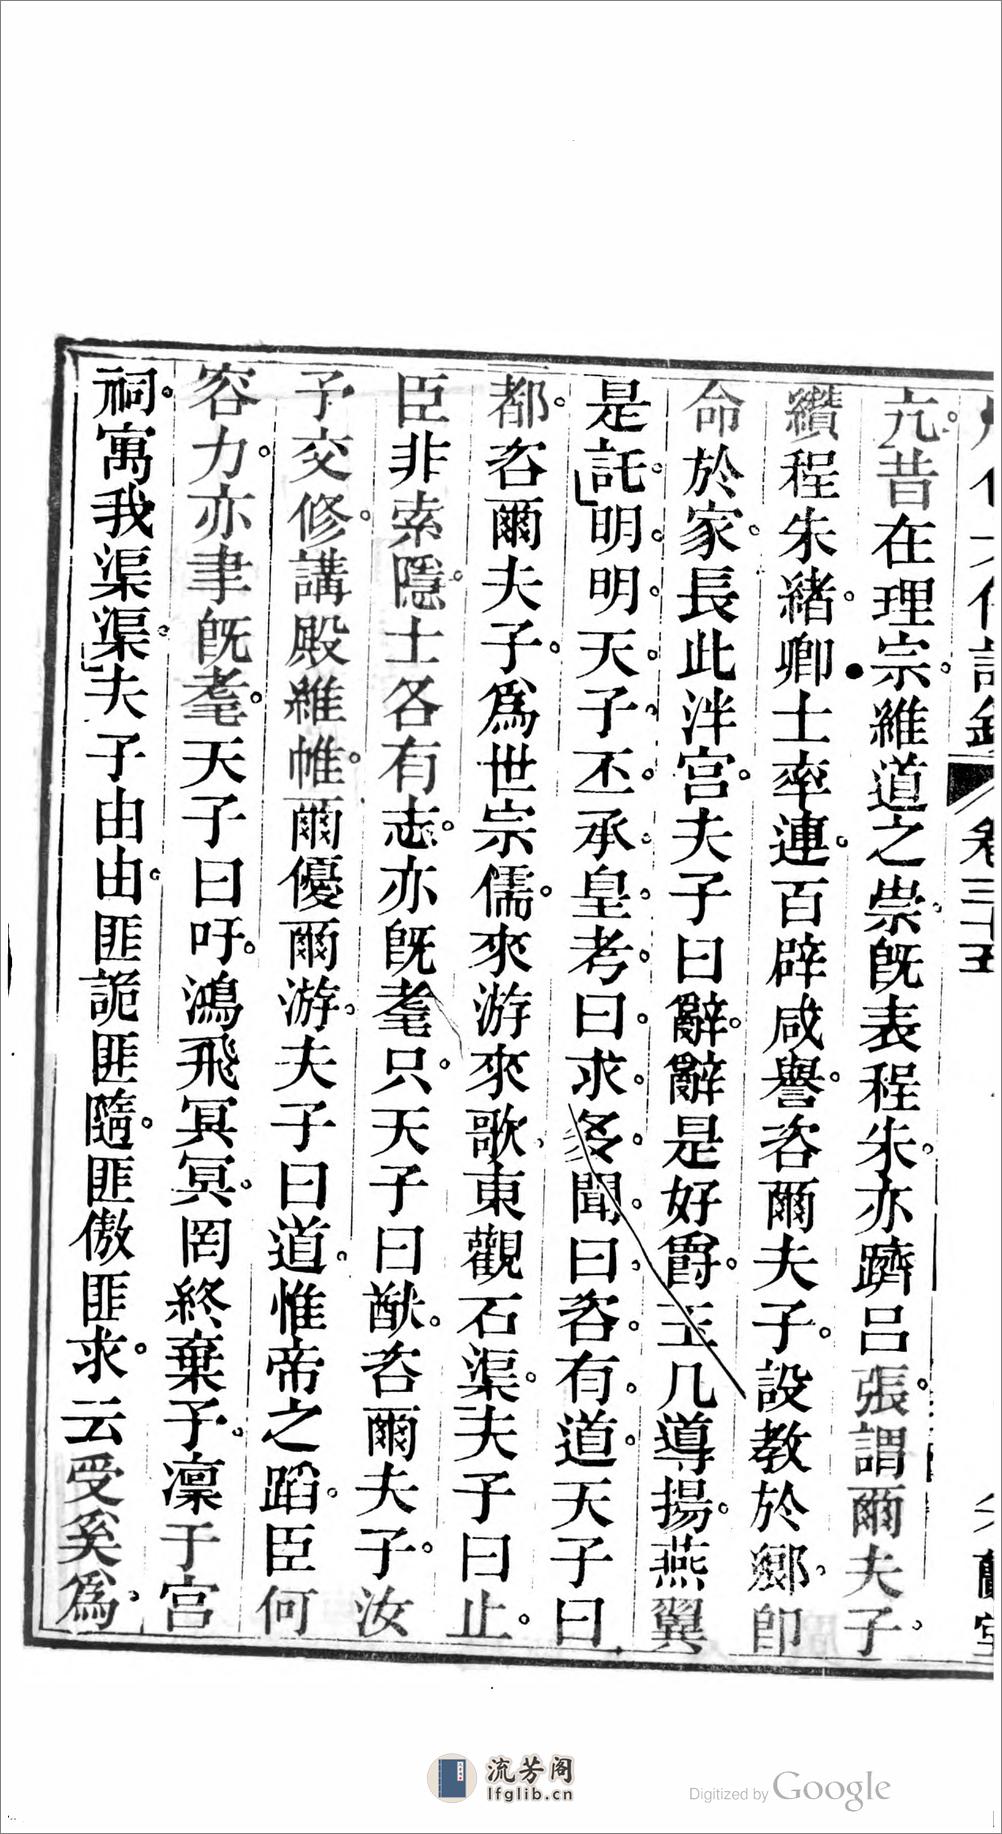 卷三十五
亢昔在理宗維道之崇旣表程朱亦躋呂張謂爾夫子
纘程朱緒卿士率連百辟咸譽咨爾夫子設教於鄉卽
命於家長此泮宫夫子曰辭辭是好爵玉几導揚燕翼
是託明明天子丕承皇考曰求多聞曰咨有道天子曰
都咨爾夫子爲世宗儒來游來歌東觀石渠夫子曰止
臣非索隱士各有志亦旣耄只天子曰猷咨爾夫子汝
予交修講殿維帷爾優爾游夫子曰道惟帝之蹈臣何
容力亦聿旣耄天子曰吁鴻飛冥冥罔終棄予凜于宫
祠寓我渠渠夫子由由匪詭匪隨匪傲匪求云受奚爲
流芳阁
lfglib.cn
Digitized by Google